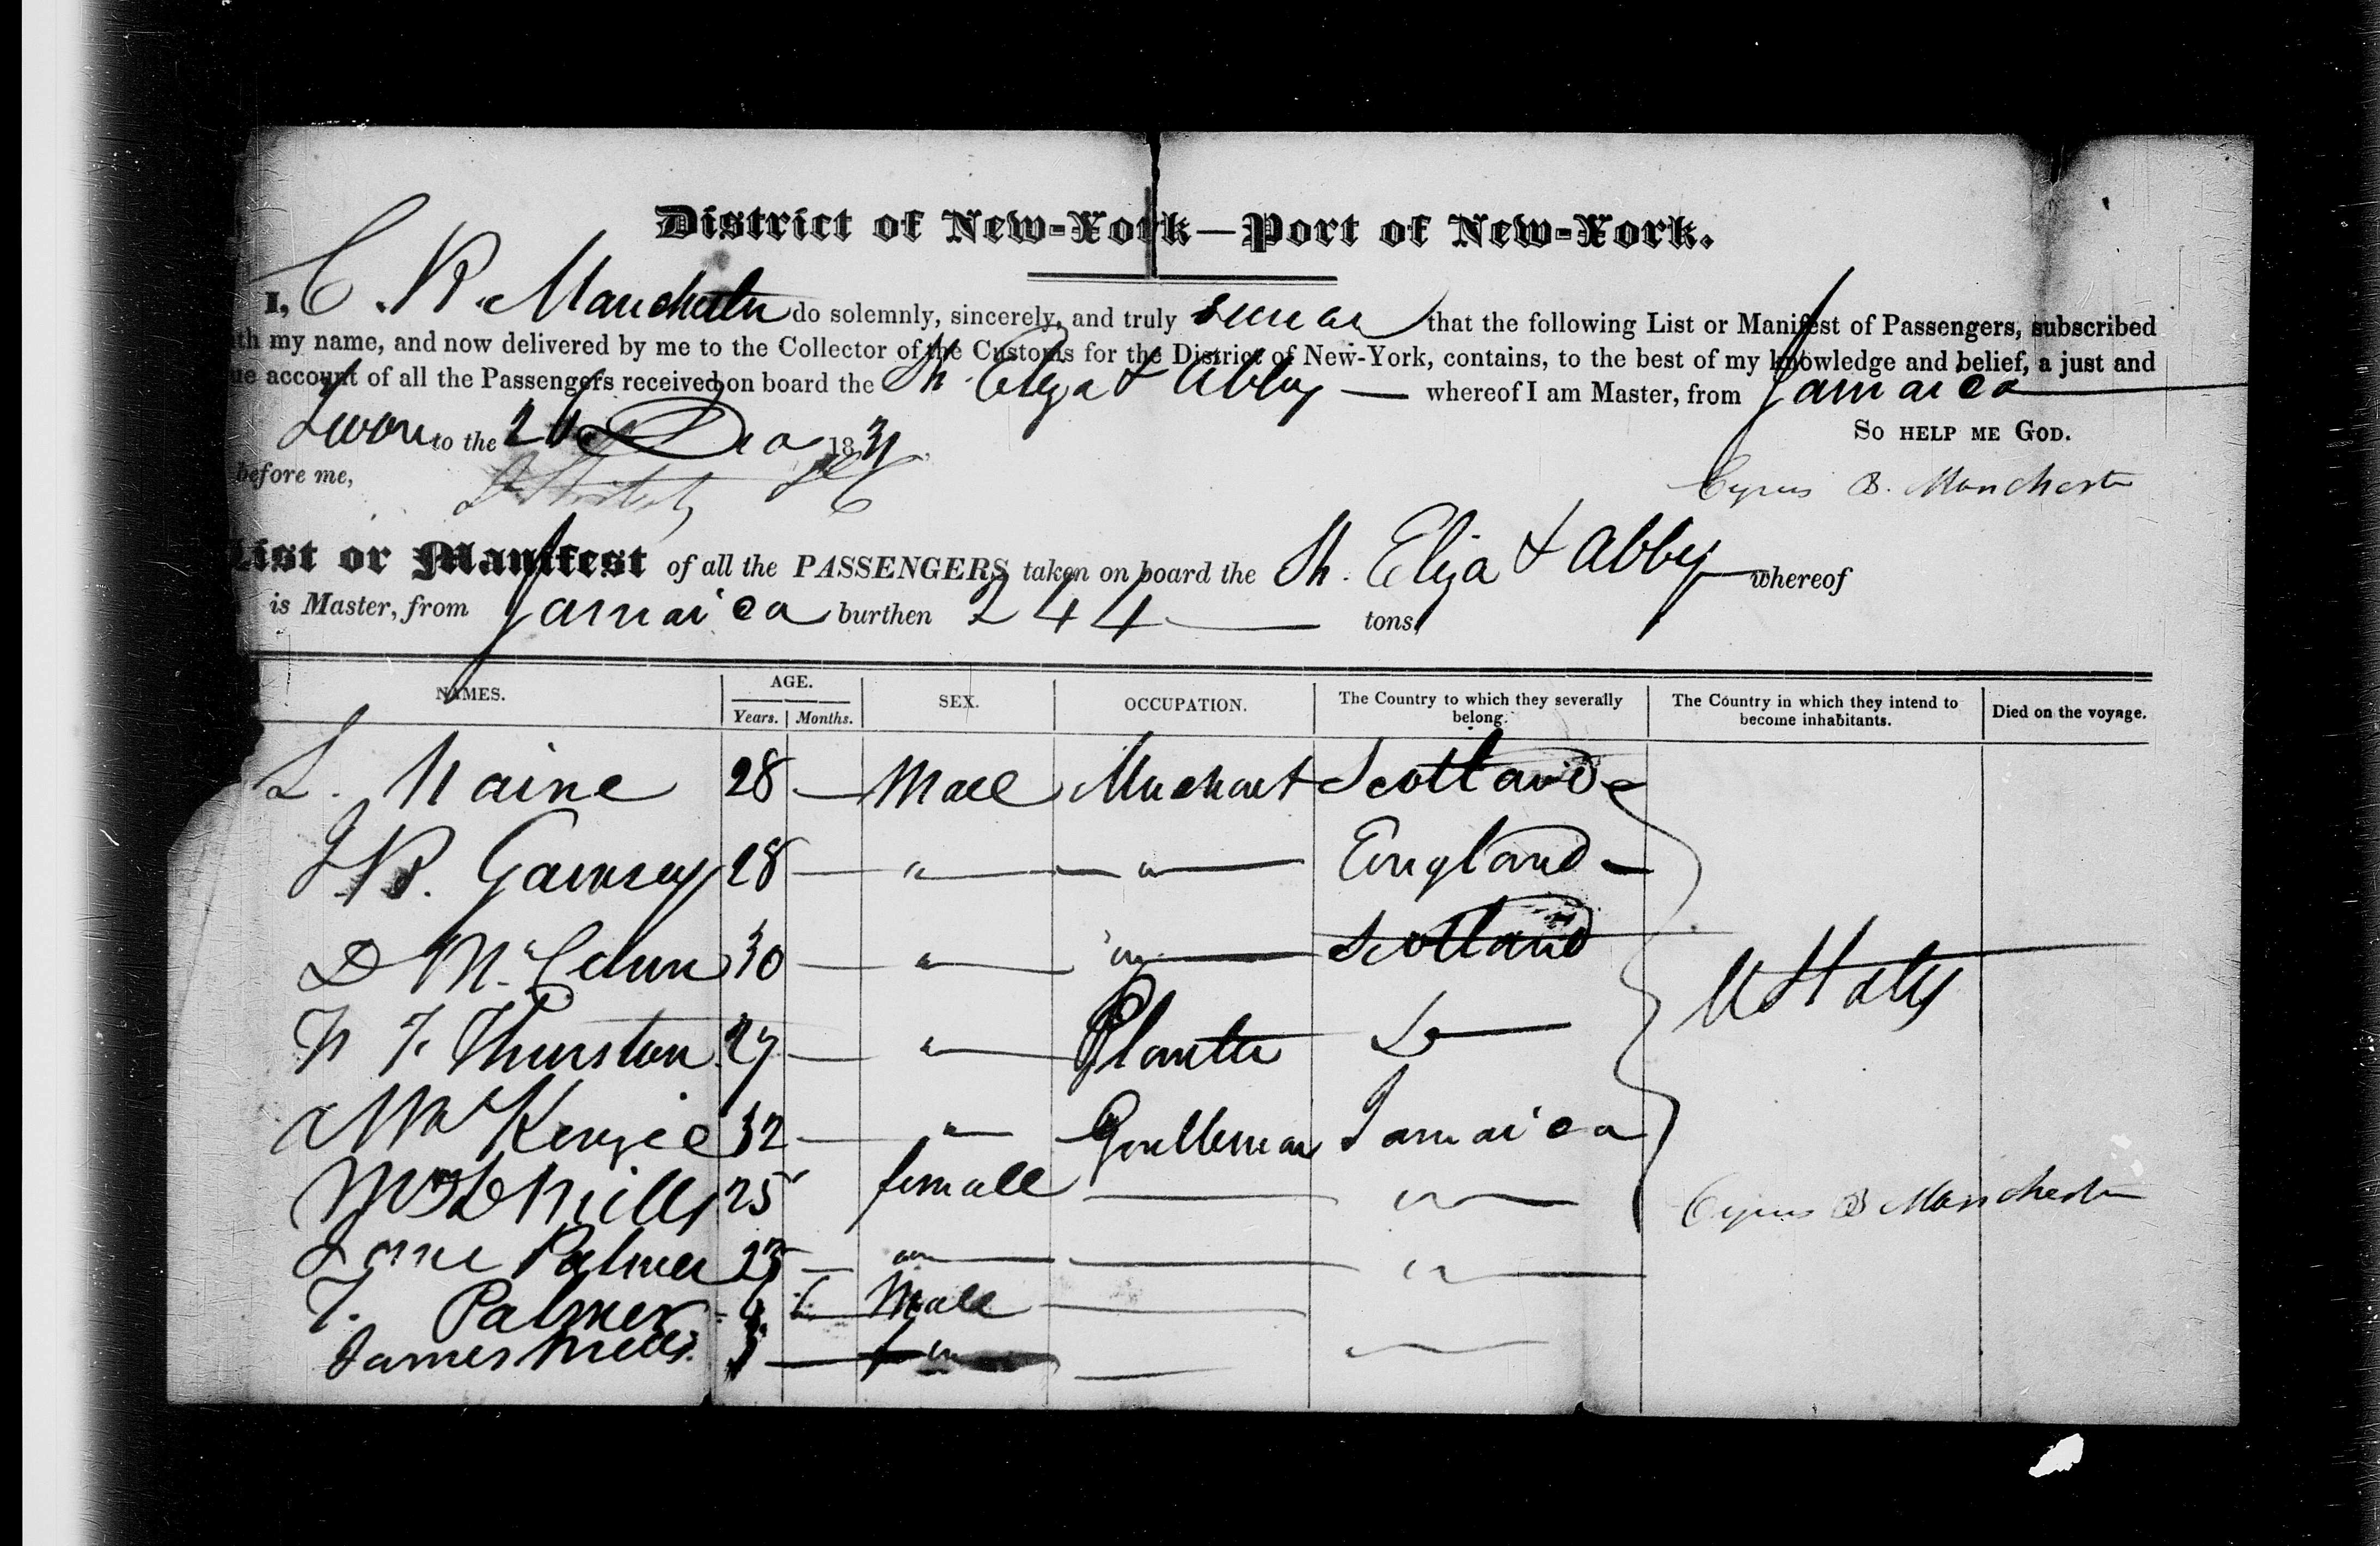 District of New-York—Port of New-York.
I, C. B. Manchester do solemnly, sincerely, and truly swear that the following List or Manifest of Passengers, subscribed
th my name, and now delivered by me to the Collector of the Customs for the District of New-York, contains, to the best of my knowledge and belief, a just and
ue account of all the Passengers received on board the Sh. Eliza & Abby — whereof I am Master, from Jamaica
Sworn to the 1831
So help me God.
before me,
Cyrus B. Manchester
List or Manifest of all the PASSENGERS taken on board the Sh. Eliza & Abby whereof
is Master, from Jamaica burthen 244 tons
NAMES. AGE. SEX. OCCUPATION. The Country to which they severally belong. The Country in which they intend to become inhabitants. Died on the voyage.
Years. Months.
L. Naine 28 — Male Merchant Scotland
J B. 28 — " — " — England —
D Mc 30 — " — " — Scotland
N F. Thurston 27 — " — Planter Do —
U States
A McKenzie 32 — " — Gentleman Jamaica
Mrs D Mills 25 female — " —
Cyrus B Manchester
Jane Palmer 23 — " — — " —
T. Palmer Male —
James Mills 3 — " —